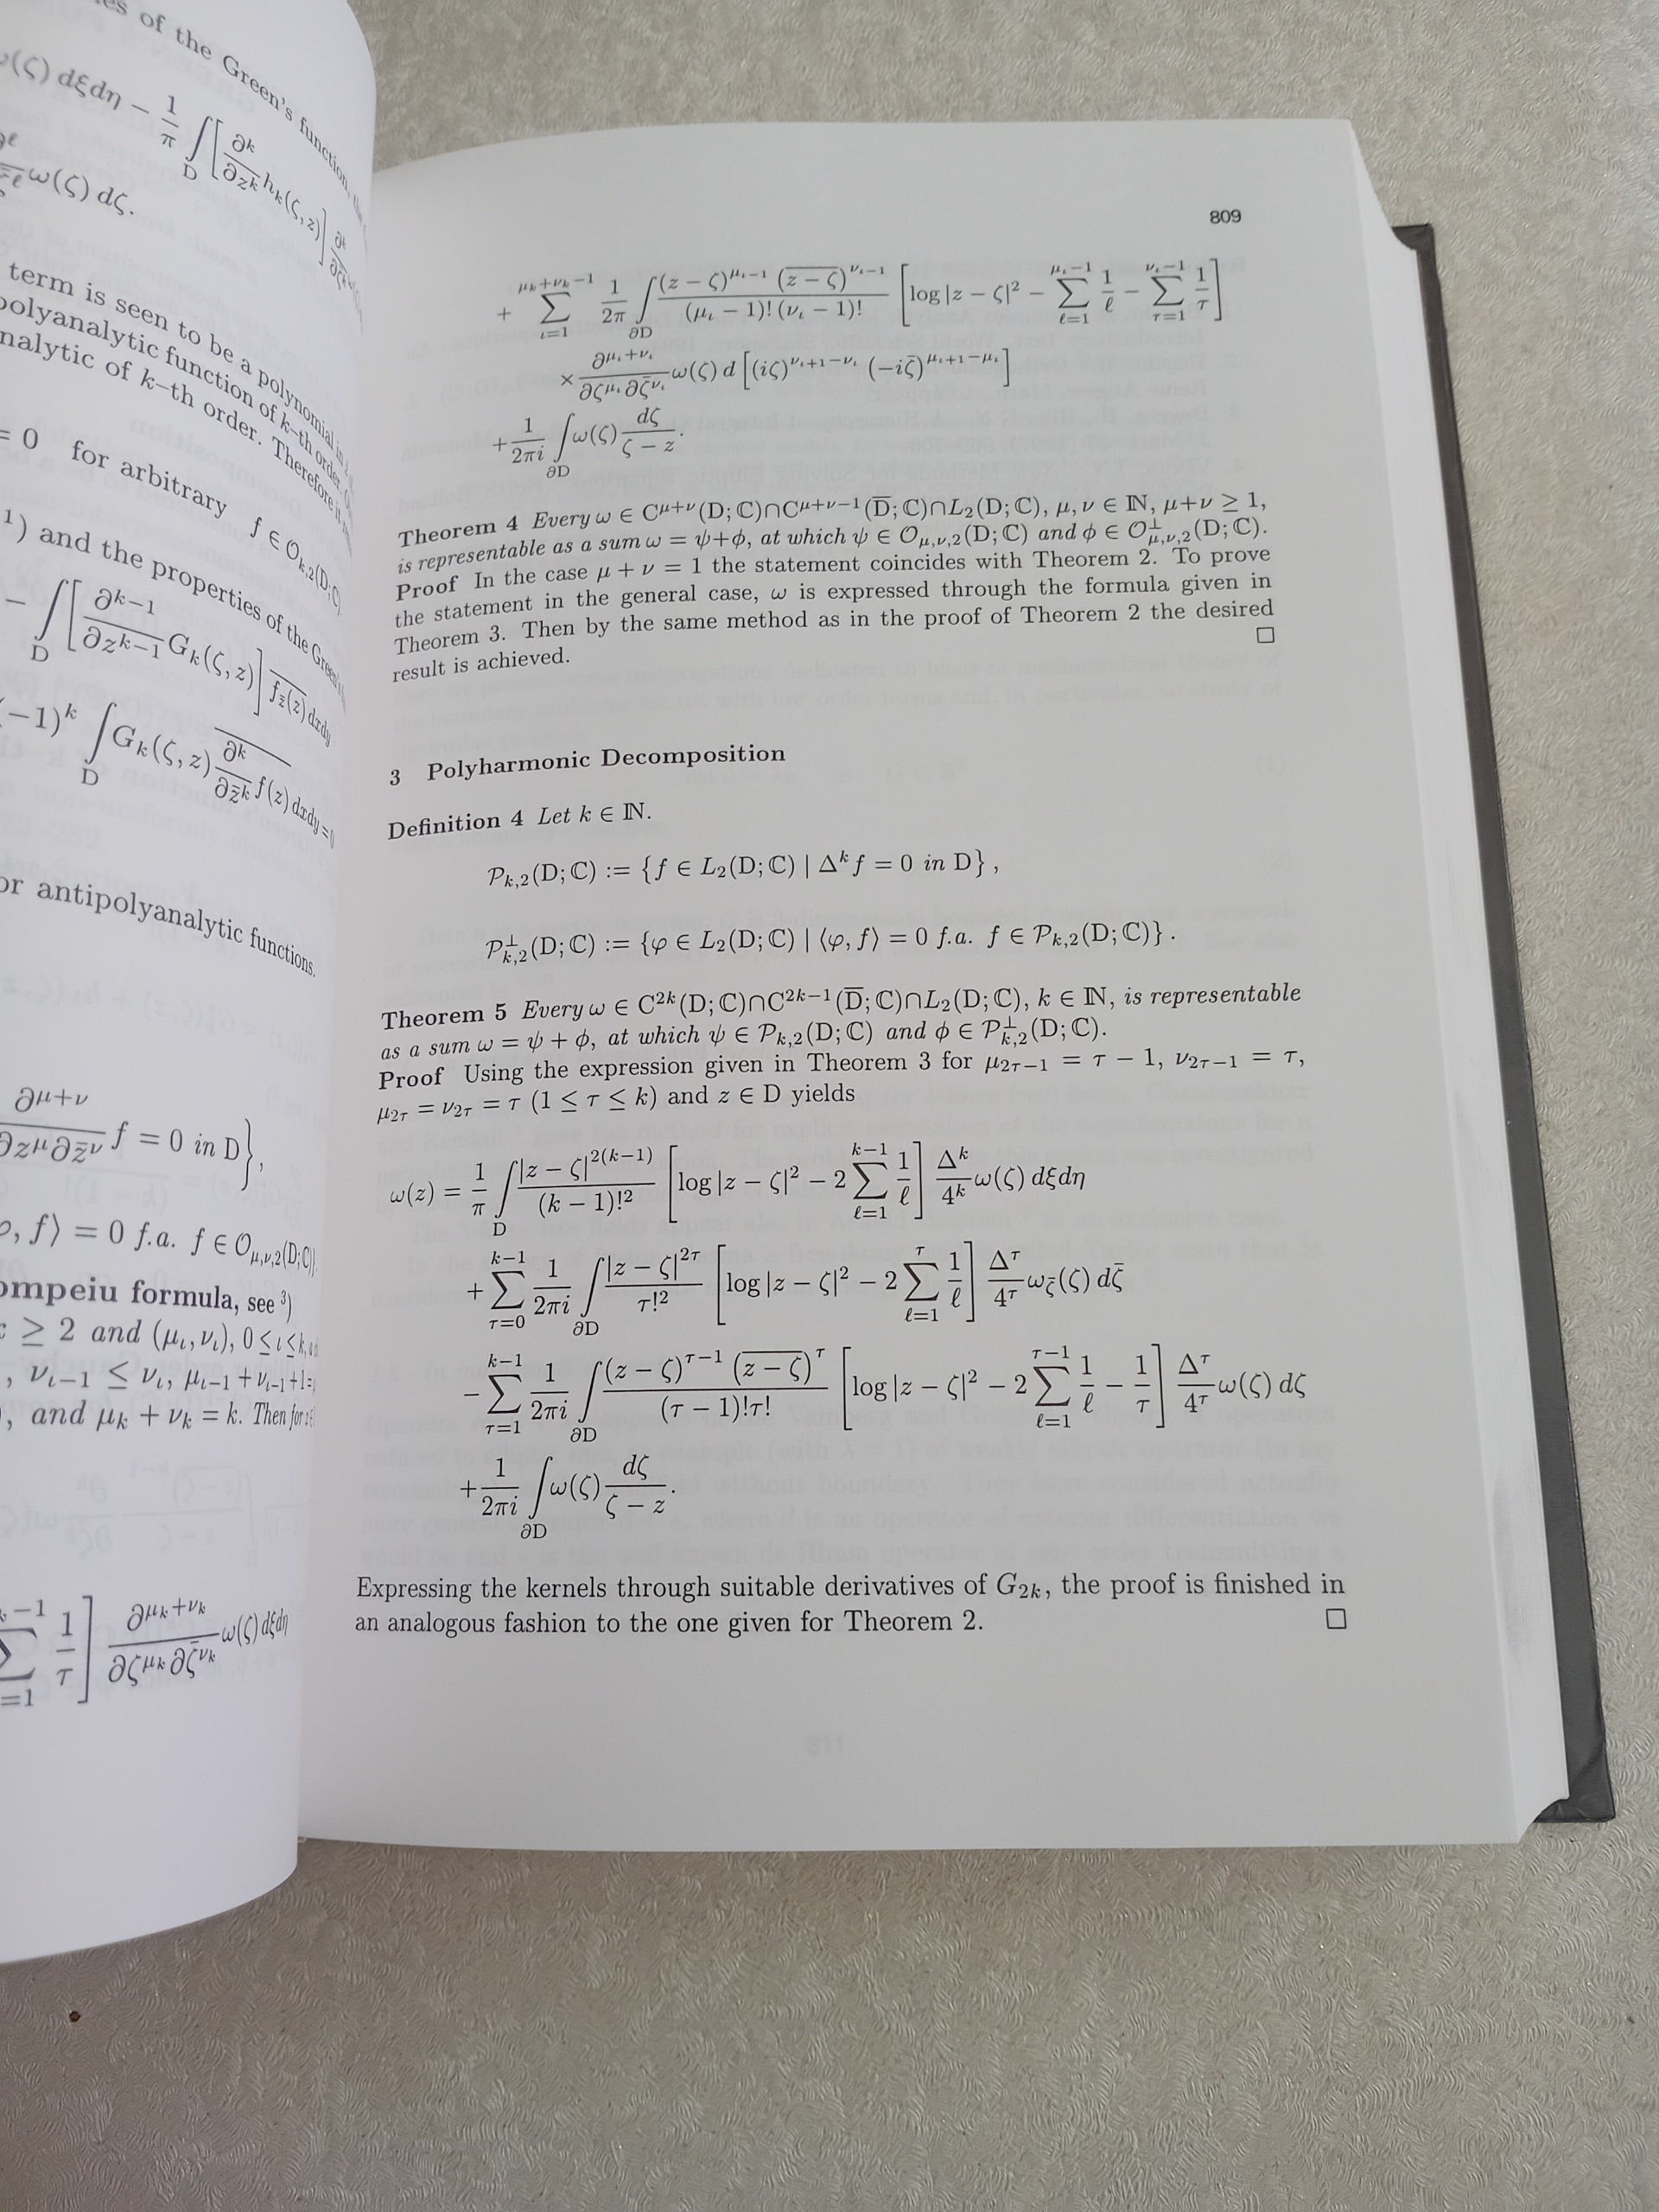 of the Green's function
ω(ζ) dξdη − 1/π ∫_D [∂^k/∂z^k h_k(ζ, z)] ∂^k/∂ζ̄^k
ω(ζ) dζ.
term is seen to be a polynomial in
polyanalytic function of k–th order.
analytic of k–th order. Therefore it
= 0 for arbitrary f ∈ O_{k,2}(D; ℂ)
¹) and the properties of the Green's
− ∫_D [∂^{k−1}/∂z^{k−1} G_k(ζ, z)] \overline{f_{z̄}(z)} dxdy
(−1)^k ∫_D G_k(ζ, z) \overline{∂^k/∂z̄^k f(z)} dxdy = 0
or antipolyanalytic functions.
∂^{μ+ν}/∂z^μ∂z̄^ν f = 0 in D},
φ, f⟩ = 0 f.a. f ∈ O_{μ,ν,2}(D; ℂ)}
ompeiu formula, see ³)
≥ 2 and (μ_ι, ν_ι), 0 ≤ ι ≤ k,
, ν_{ι−1} ≤ ν_ι, μ_{ι−1} + ν_{ι−1} + 1 =
, and μ_k + ν_k = k. Then for
−1 ∑ =1 1/τ] ∂^{μ_k+ν_k}/∂ζ^{μ_k}∂ζ̄^{ν_k} ω(ζ) dξdη
809
+ ∑_{ι=1}^{μ_k+ν_k−1} 1/2π ∫_{∂D} (z − ζ)^{μ_ι−1} (\overline{z − ζ})^{ν_ι−1}/(μ_ι − 1)! (ν_ι − 1)! [log |z − ζ|² − ∑_{ℓ=1}^{μ_ι−1} 1/ℓ − ∑_{τ=1}^{ν_ι−1} 1/τ]
× ∂^{μ_ι+ν_ι}/∂ζ^{μ_ι}∂ζ̄^{ν_ι} ω(ζ) d [(iζ)^{ν_ι+1−ν_ι} (−iζ̄)^{μ_ι+1−μ_ι}]
+ 1/2πi ∫_{∂D} ω(ζ) dζ/(ζ − z).
Theorem 4 Every ω ∈ C^{μ+ν}(D; ℂ)∩C^{μ+ν−1}(D̄; ℂ)∩L₂(D; ℂ), μ, ν ∈ ℕ, μ+ν ≥ 1,
is representable as a sum ω = ψ+ϕ, at which ψ ∈ O_{μ,ν,2}(D; ℂ) and ϕ ∈ O^⊥_{μ,ν,2}(D; ℂ).
Proof In the case μ + ν = 1 the statement coincides with Theorem 2. To prove
the statement in the general case, ω is expressed through the formula given in
Theorem 3. Then by the same method as in the proof of Theorem 2 the desired
result is achieved. □
3 Polyharmonic Decomposition
Definition 4 Let k ∈ ℕ.
P_{k,2}(D; ℂ) := {f ∈ L₂(D; ℂ) | Δ^k f = 0 in D} ,
P^⊥_{k,2}(D; ℂ) := {φ ∈ L₂(D; ℂ) | ⟨φ, f⟩ = 0 f.a. f ∈ P_{k,2}(D; ℂ)} .
Theorem 5 Every ω ∈ C^{2k}(D; ℂ)∩C^{2k−1}(D̄; ℂ)∩L₂(D; ℂ), k ∈ ℕ, is representable
as a sum ω = ψ + ϕ, at which ψ ∈ P_{k,2}(D; ℂ) and ϕ ∈ P^⊥_{k,2}(D; ℂ).
Proof Using the expression given in Theorem 3 for μ_{2τ−1} = τ − 1, ν_{2τ−1} = τ,
μ_{2τ} = ν_{2τ} = τ (1 ≤ τ ≤ k) and z ∈ D yields
ω(z) = 1/π ∫_D |z − ζ|^{2(k−1)}/(k − 1)!² [log |z − ζ|² − 2 ∑_{ℓ=1}^{k−1} 1/ℓ] Δ^k/4^k ω(ζ) dξdη
+ ∑_{τ=0}^{k−1} 1/2πi ∫_{∂D} |z − ζ|^{2τ}/τ!² [log |z − ζ|² − 2 ∑_{ℓ=1}^{τ} 1/ℓ] Δ^τ/4^τ ω_{ζ̄}(ζ) dζ̄
− ∑_{τ=1}^{k−1} 1/2πi ∫_{∂D} (z − ζ)^{τ−1} (\overline{z − ζ})^τ/(τ − 1)!τ! [log |z − ζ|² − 2 ∑_{ℓ=1}^{τ−1} 1/ℓ − 1/τ] Δ^τ/4^τ ω(ζ) dζ
+ 1/2πi ∫_{∂D} ω(ζ) dζ/(ζ − z).
Expressing the kernels through suitable derivatives of G_{2k}, the proof is finished in
an analogous fashion to the one given for Theorem 2. □